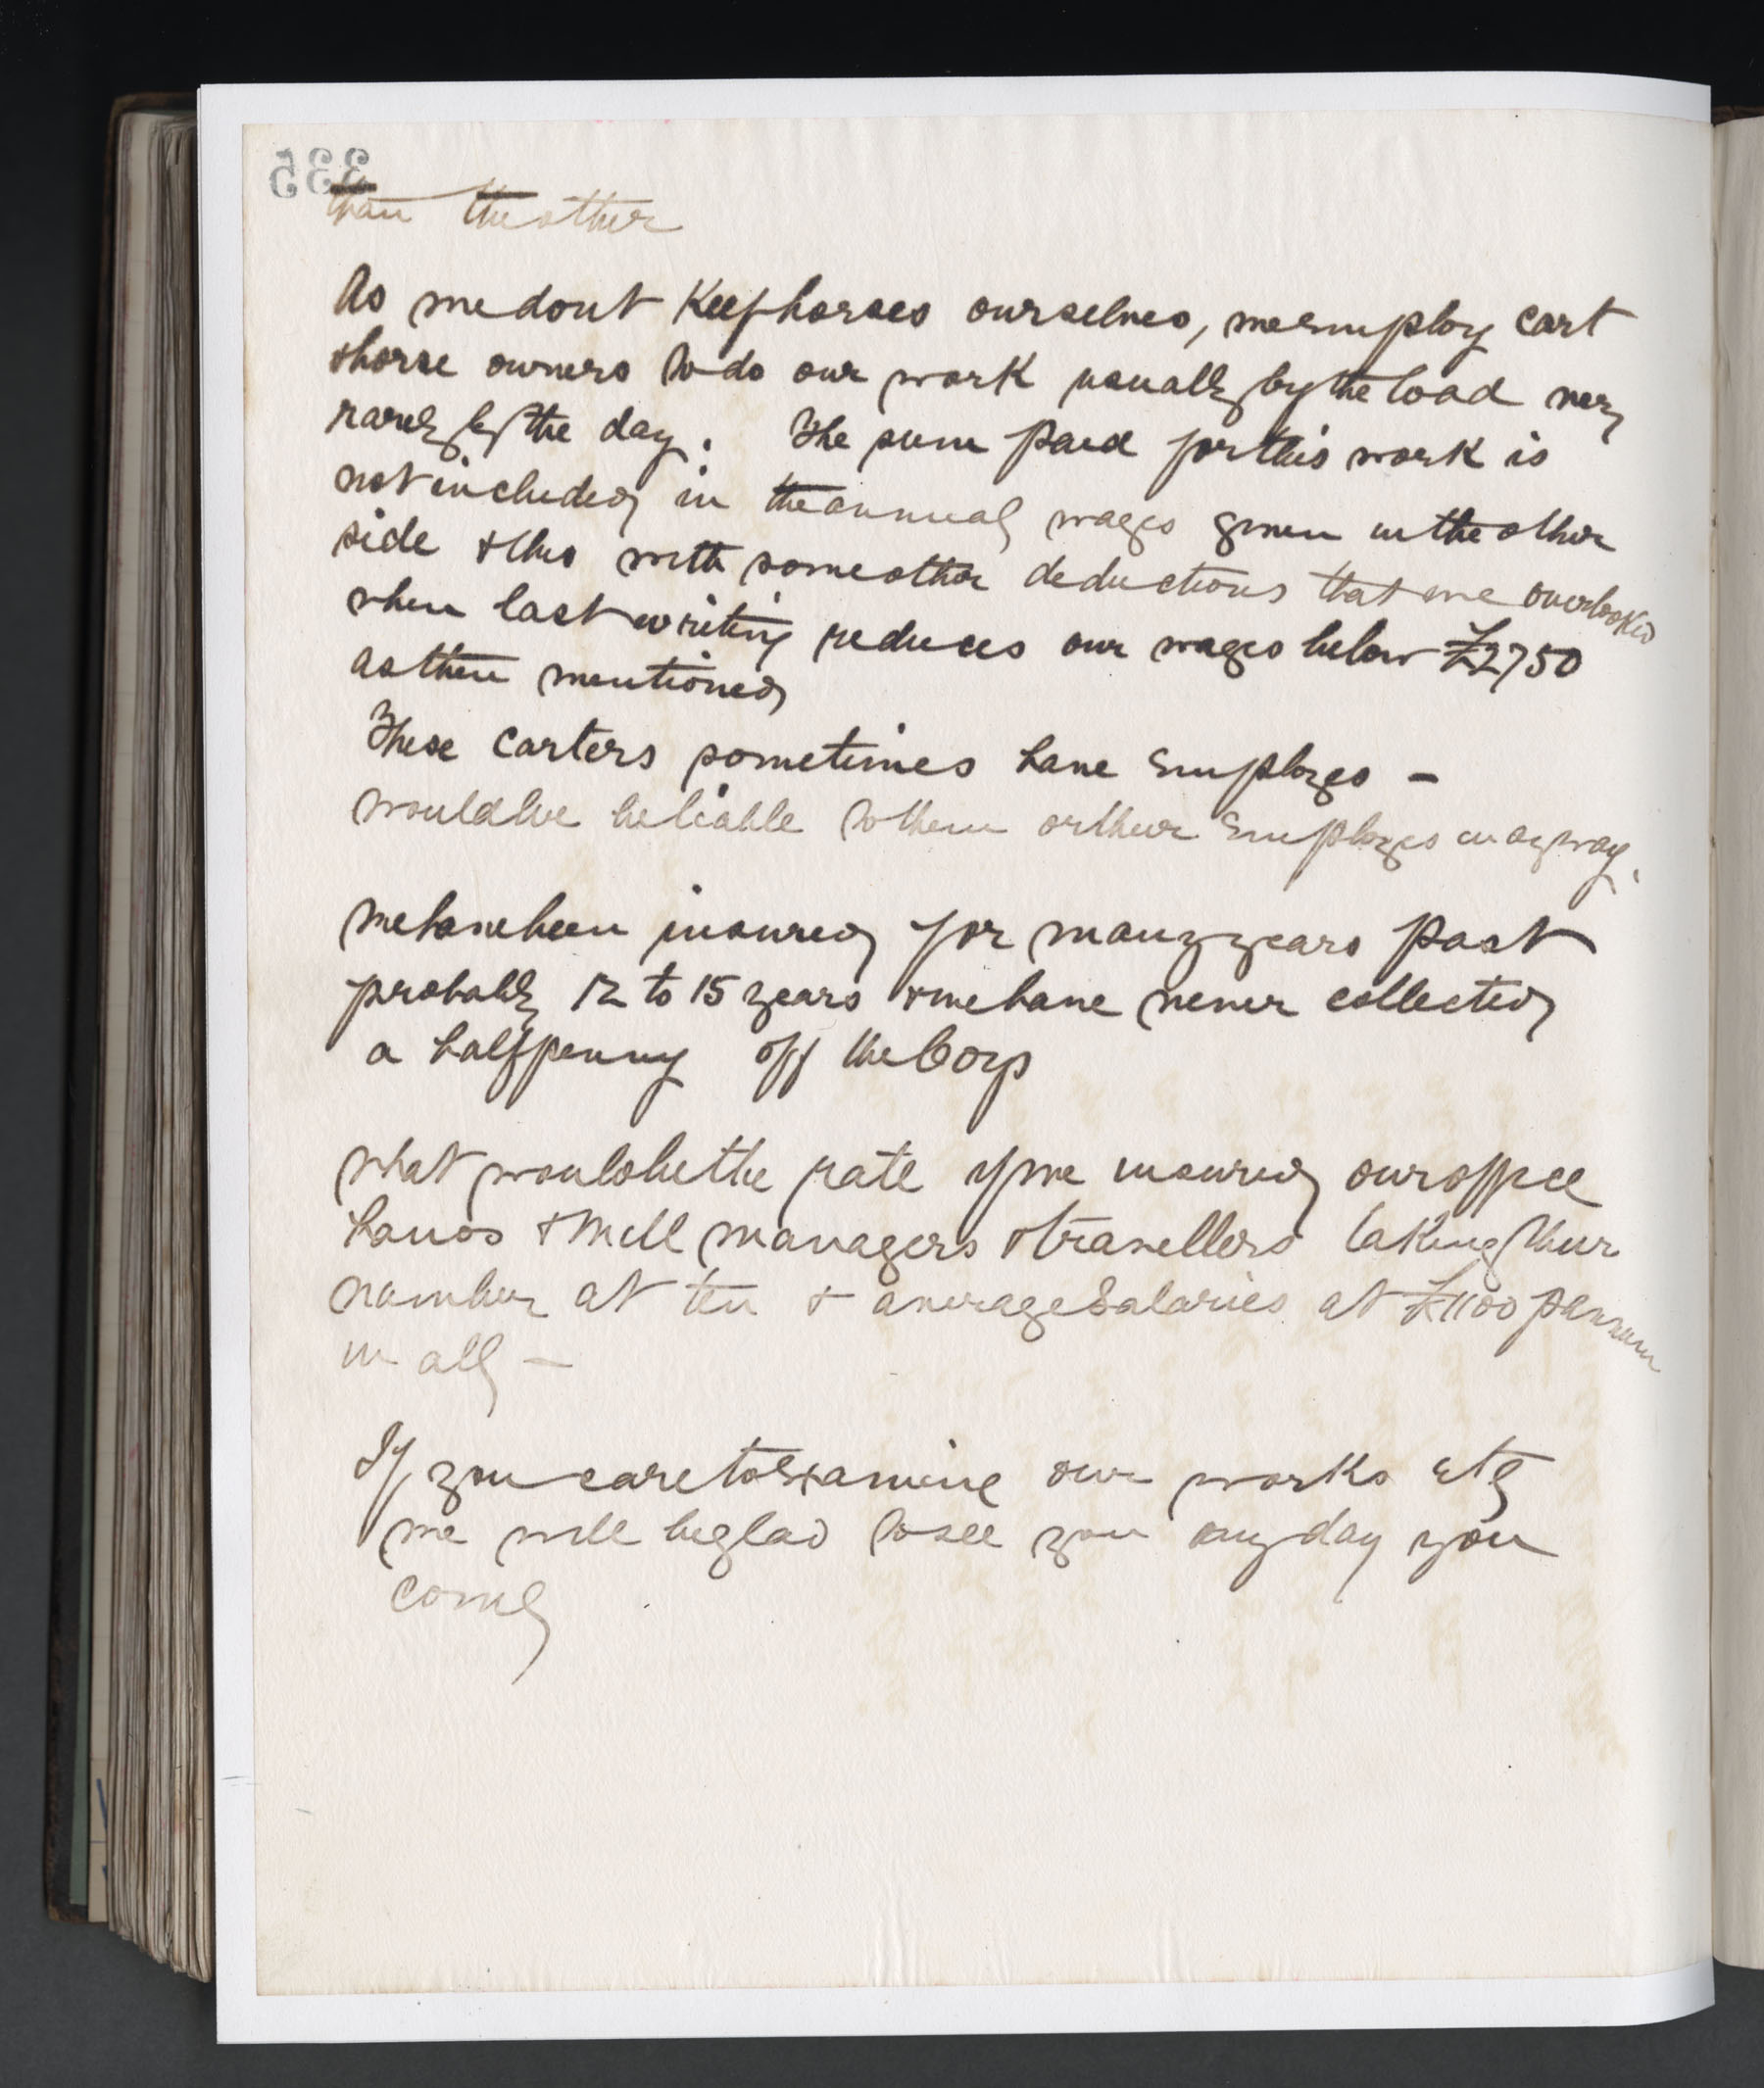 335
than the other
As we dont Keep horses ourselves, we employ cart
& horse owners to do our work usually by the load very
rarely by the day. The sum paid for this work is
not included in the annual wages given in the other
side & this with some other deductions that we overlooked
when last writing reduces our wages below £2750
as then mentioned
These carters sometimes have Employes –
would we be liable to them or their Employes in any way.
We have been insured for many years past
probably 12 to 15 years & we have never collected
a halfpenny off the Coys
What would be the rate if we insured our office
hands & Mill managers & travellers taking their
number at ten & average Salaries at £1100 p annum
in all –
If you care to Examine our works etc
we will be glad to see you any day you
come